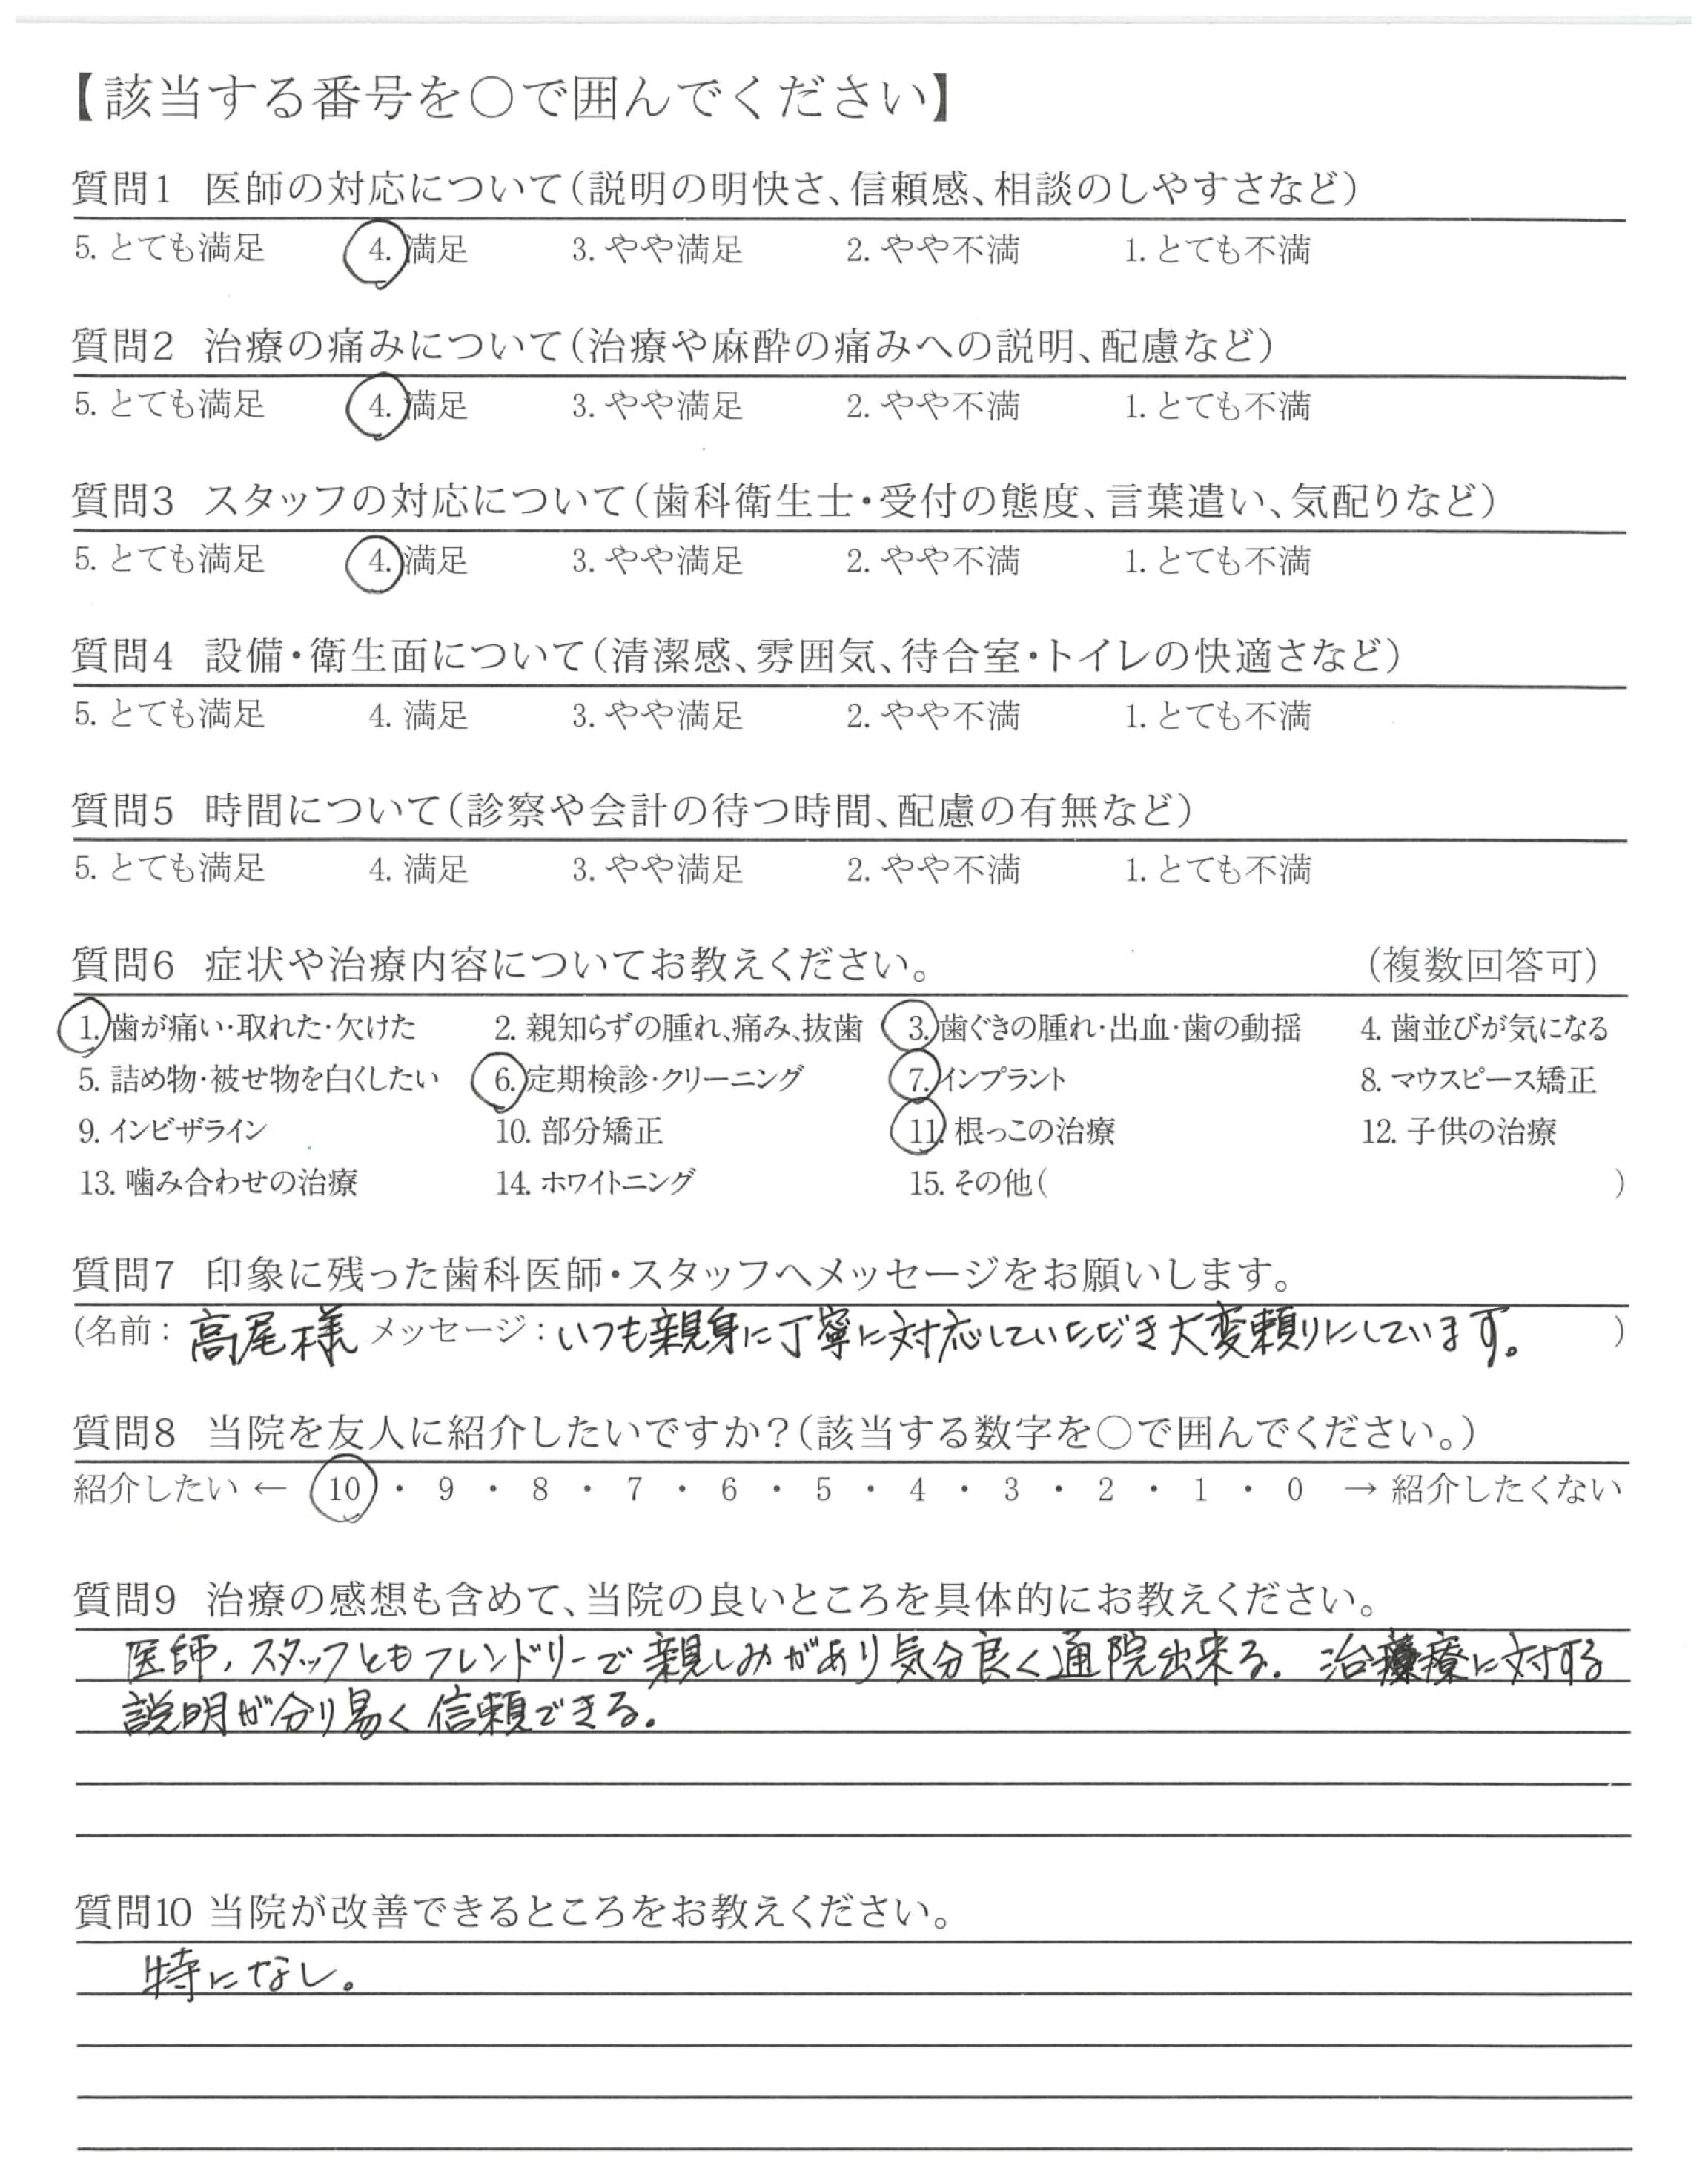 【該当する番号を○で囲んでください】
質問1 医師の対応について(説明の明快さ、信頼感、相談のしやすさなど)
5. とても満足 4. 満足 3. やや満足 2. やや不満 1. とても不満
質問2 治療の痛みについて(治療や麻酔の痛みへの説明、配慮など)
5. とても満足 4. 満足 3. やや満足 2. やや不満 1. とても不満
質問3 スタッフの対応について(歯科衛生士・受付の態度、言葉遣い、気配りなど)
5. とても満足 4. 満足 3. やや満足 2. やや不満 1. とても不満
質問4 設備・衛生面について(清潔感、雰囲気、待合室・トイレの快適さなど)
5. とても満足 4. 満足 3. やや満足 2. やや不満 1. とても不満
質問5 時間について(診察や会計の待つ時間、配慮の有無など)
5. とても満足 4. 満足 3. やや満足 2. やや不満 1. とても不満
質問6 症状や治療内容についてお教えください。 (複数回答可)
1. 歯が痛い・取れた・欠けた 2. 親知らずの腫れ、痛み、抜歯 3. 歯ぐきの腫れ・出血・歯の動揺 4. 歯並びが気になる
5. 詰め物・被せ物を白くしたい 6. 定期検診・クリーニング 7. インプラント 8. マウスピース矯正
9. インビザライン 10. 部分矯正 11. 根っこの治療 12. 子供の治療
13. 噛み合わせの治療 14. ホワイトニング 15. その他( )
質問7 印象に残った歯科医師・スタッフへメッセージをお願いします。
(名前: 高尾様 メッセージ: いつも親身に丁寧に対応していただき大変頼りにしています。 )
質問8 当院を友人に紹介したいですか?(該当する数字を○で囲んでください。)
紹介したい ← 10 ・ 9 ・ 8 ・ 7 ・ 6 ・ 5 ・ 4 ・ 3 ・ 2 ・ 1 ・ 0 → 紹介したくない
質問9 治療の感想も含めて、当院の良いところを具体的にお教えください。
医師,スタッフともフレンドリーで親しみがあり気分良く通院出来る。治療に対する
説明が分り易く信頼できる。
質問10 当院が改善できるところをお教えください。
特になし。